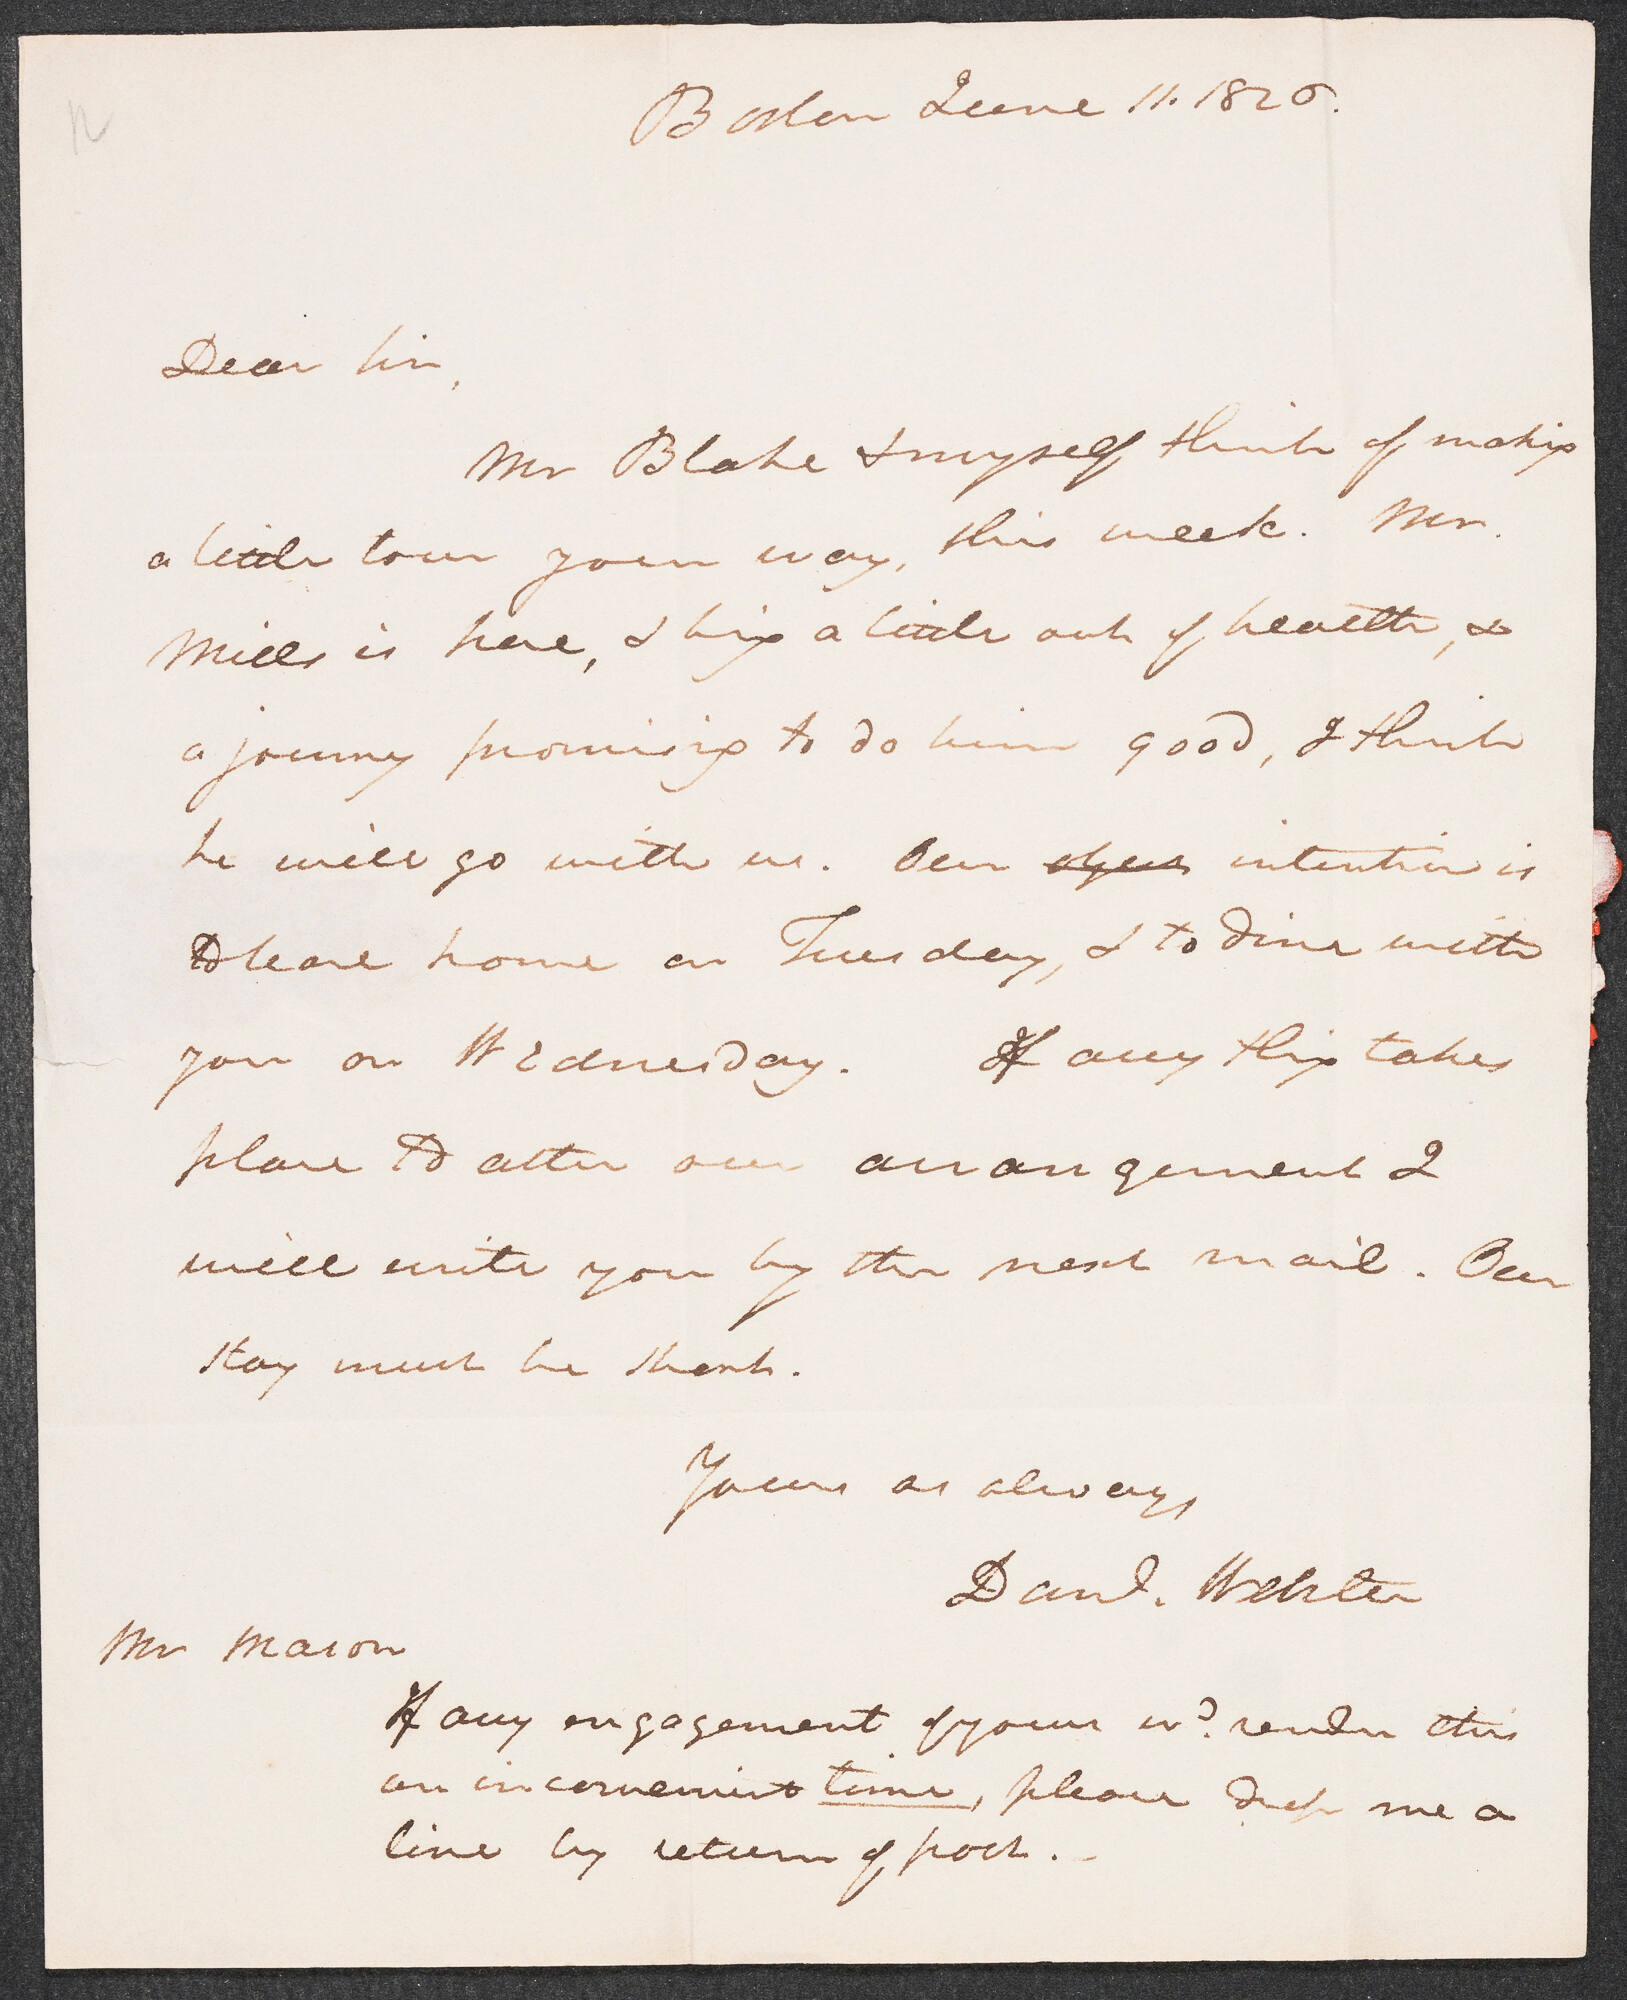 Boston June 11. 1826.
Dear Sir,
Mr Blake & myself think of making
a little tour your way, this week. Mr.
Mills is here, & being a little out of health, &
a journey promising to do him good, I think
he will go with us. Our intention is
to leave home on Tuesday, & to dine with
you on Wednesday. If any thing takes
place to alter our arrangement I
will write you by the next mail. Our
stay must be short.
Yours as always,
Danl. Webster
Mr Mason
If any engagement of yours wd. render this
an inconvenient time, please drop me a
line by return of post. –